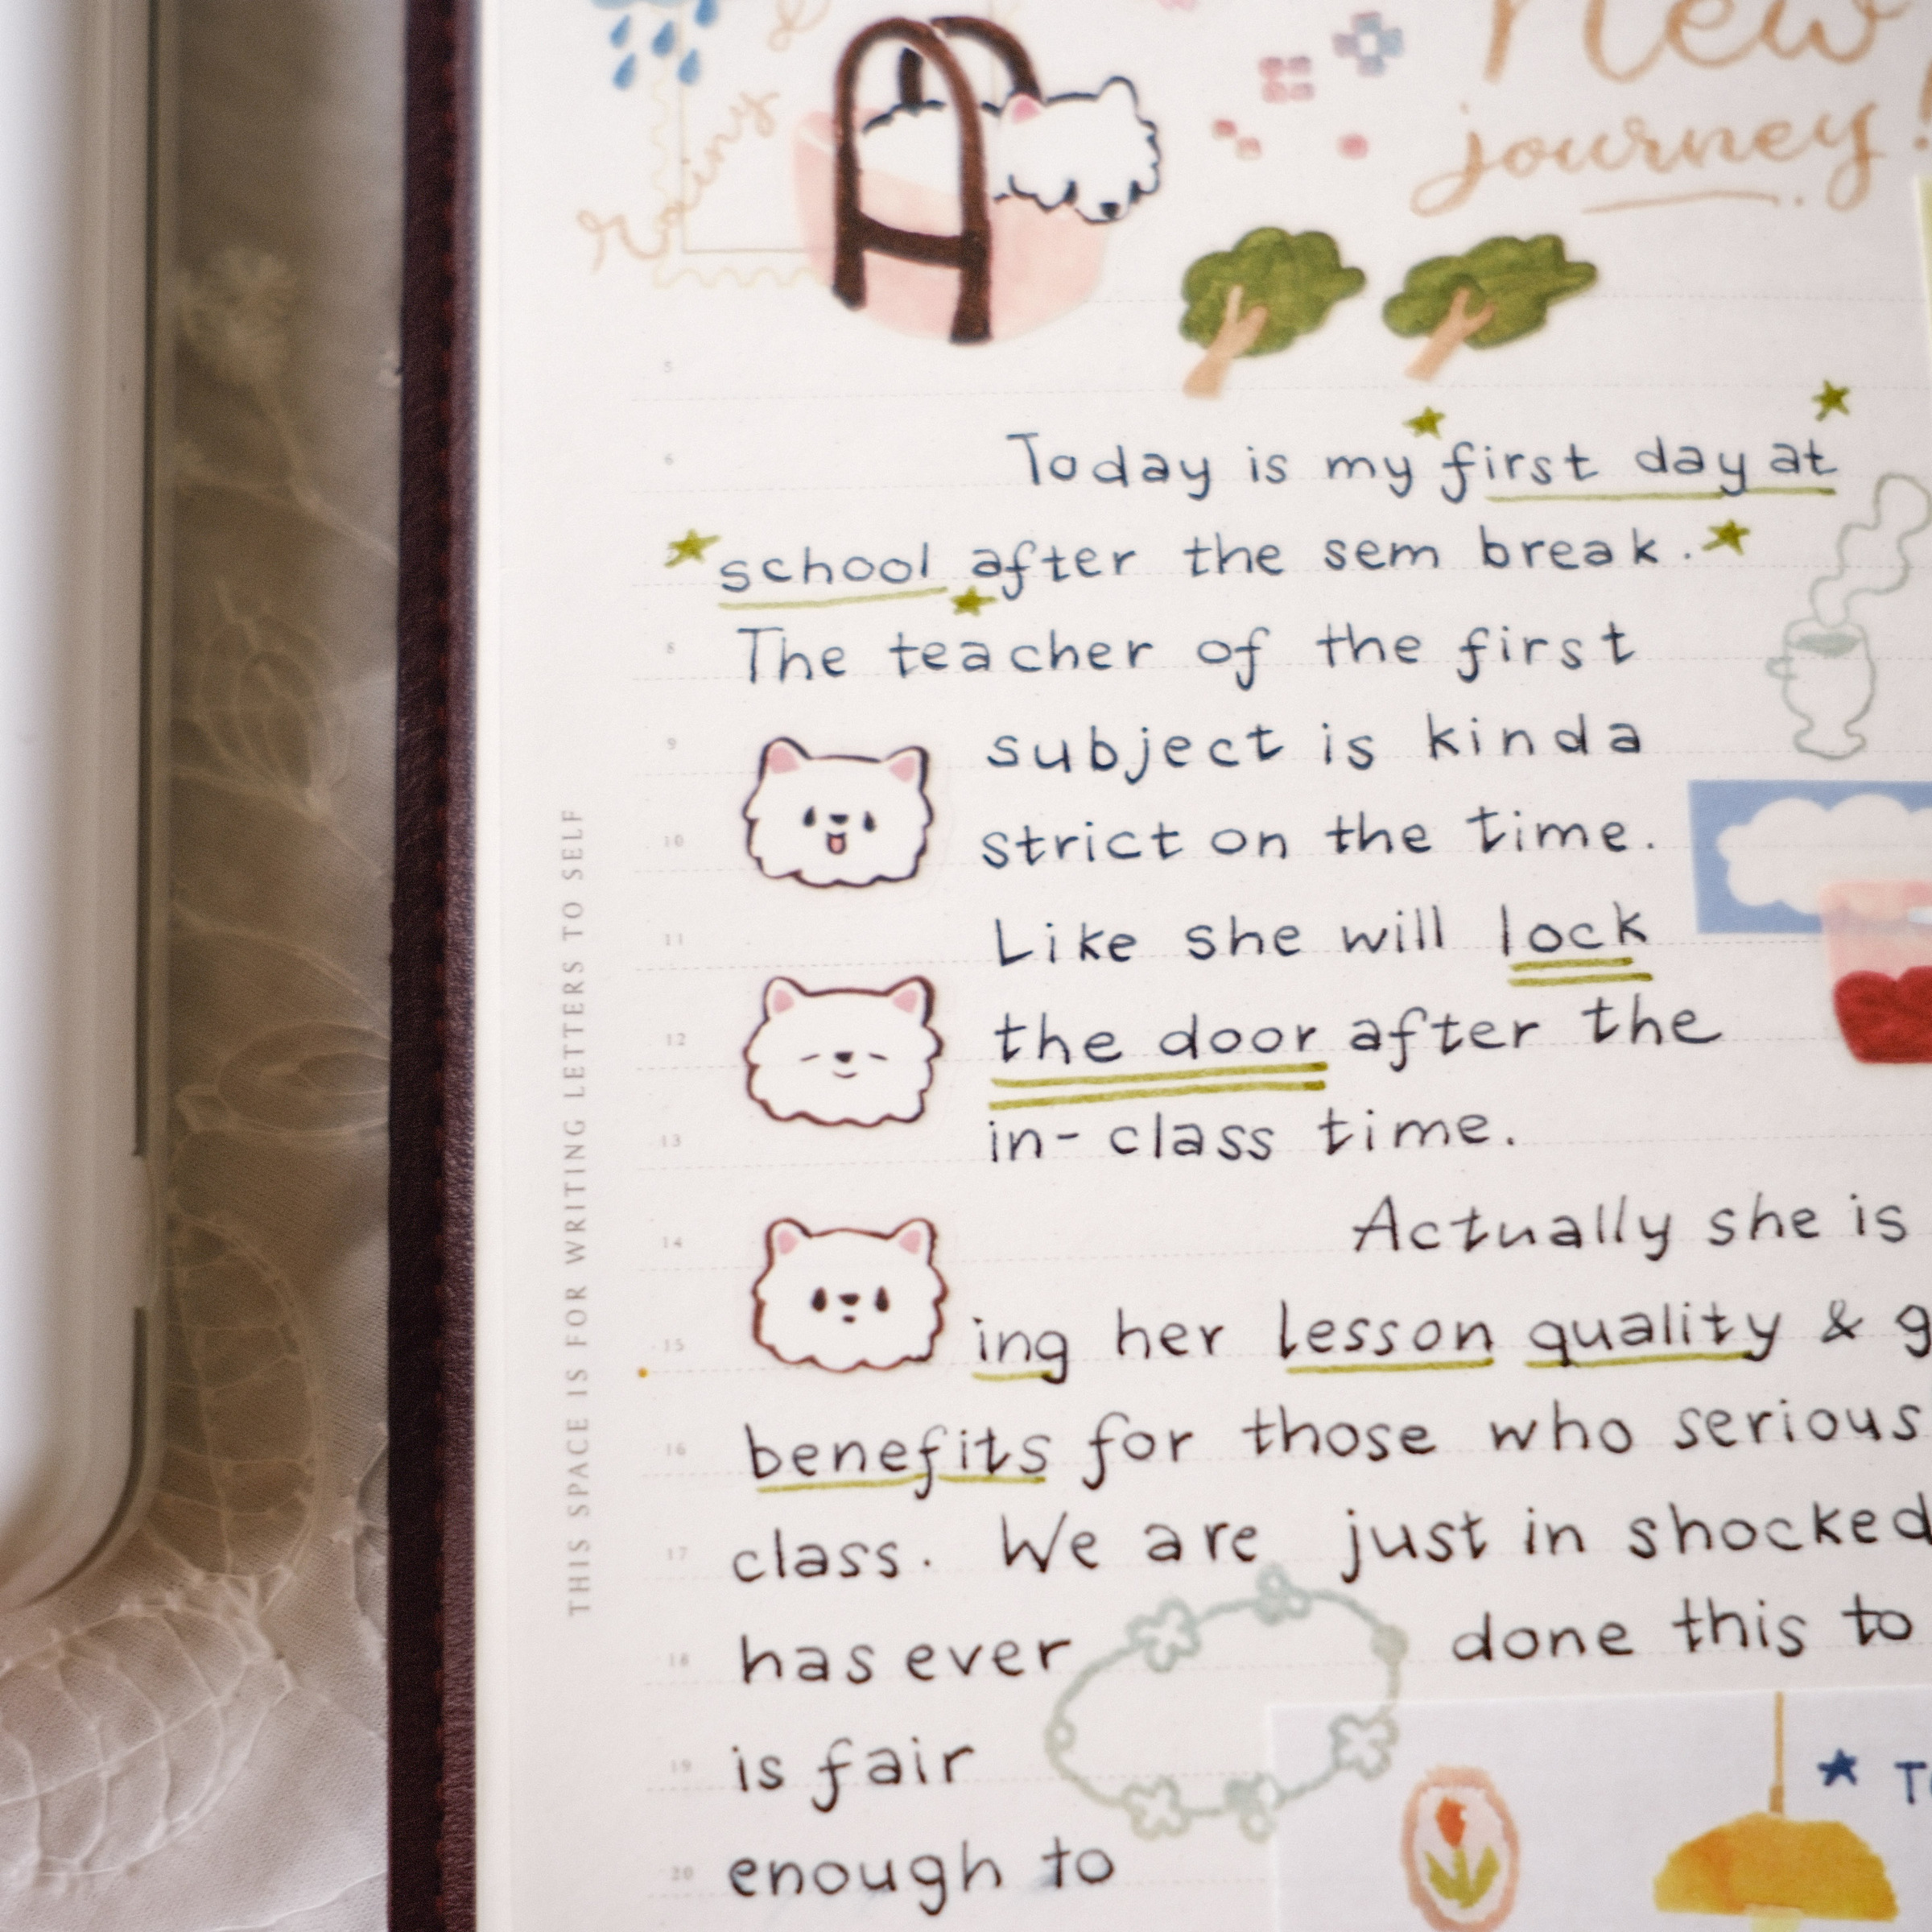 rainy
New
journey!
Today is my first day at
school after the sem break.
The teacher of the first
subject is kinda
strict on the time.
Like she will lock
the door after the
in-class time.
Actually she is
ing her lesson quality & g
benefits for those who serious
class. We are just in shocked
has ever done this to
is fair
enough to
THIS SPACE IS FOR WRITING LETTERS TO SELF
5
6
8
9
10
11
12
13
14
15
16
17
18
19
20